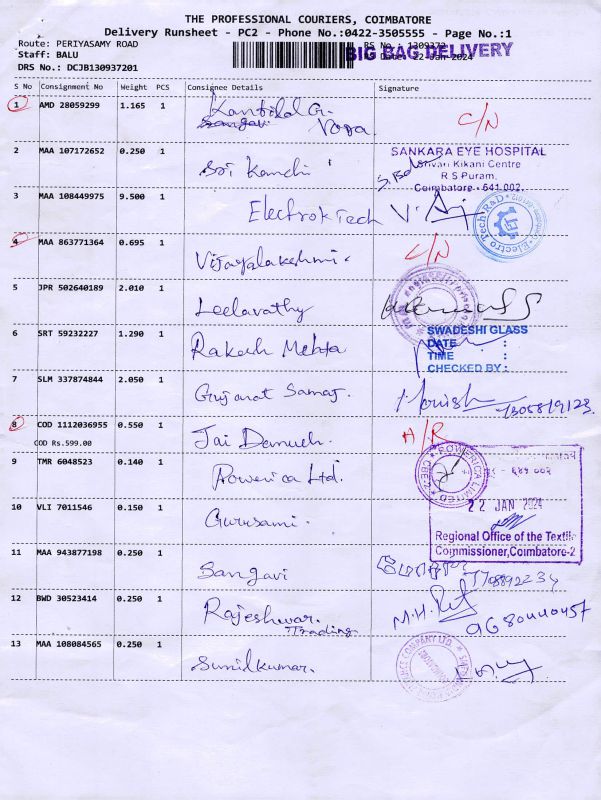 THE PROFESSIONAL COURIERS, COIMBATORE
Delivery Runsheet - PC2 - Phone No.:0422-3505555 - Page No.:1
Route: PERIYASAMY ROAD
Staff: BALU
DRS No.: DCJB130937201
RS No.: 1309372
BIG BAG DELIVERY
Date: 22-Jan-2024
S No Consignment No Weight PCS Consignee Details Signature
1 AMD 28059299 1.165 1 Kantilal G. Vora C/N
2 MAA 107172652 0.250 1 Sri Kanchi
SANKARA EYE HOSPITAL
Shivari Kikani Centre
R S Puram,
Coimbatore - 641 002.
3 MAA 108449975 9.500 1 Electrok Tech
4 MAA 863771364 0.695 1 Vijayalakshmi. C/N
5 JPR 502640189 2.010 1 Leelavathy
6 SRT 59232227 1.290 1 Rakesh Mehta
SWADESHI GLASS
DATE :
TIME :
CHECKED BY :
7 SLM 337874844 2.050 1 Gujarat Samaj.
8 COD 1112036955 0.550 1 A/R
COD Rs.599.00
9 TMR 6048523 0.140 1 Powerica Ltd.
POWERICA LIMITED
CBE-2
10 VLI 7011546 0.150 1 Gurusami.
22 JAN 2024
Regional Office of the Textile
Commissioner, Coimbatore-2
11 MAA 943877198 0.250 1 Sangavi
12 BWD 30523414 0.250 1 Rajeshwar Trading
13 MAA 108084565 0.250 1 Sunilkumar.